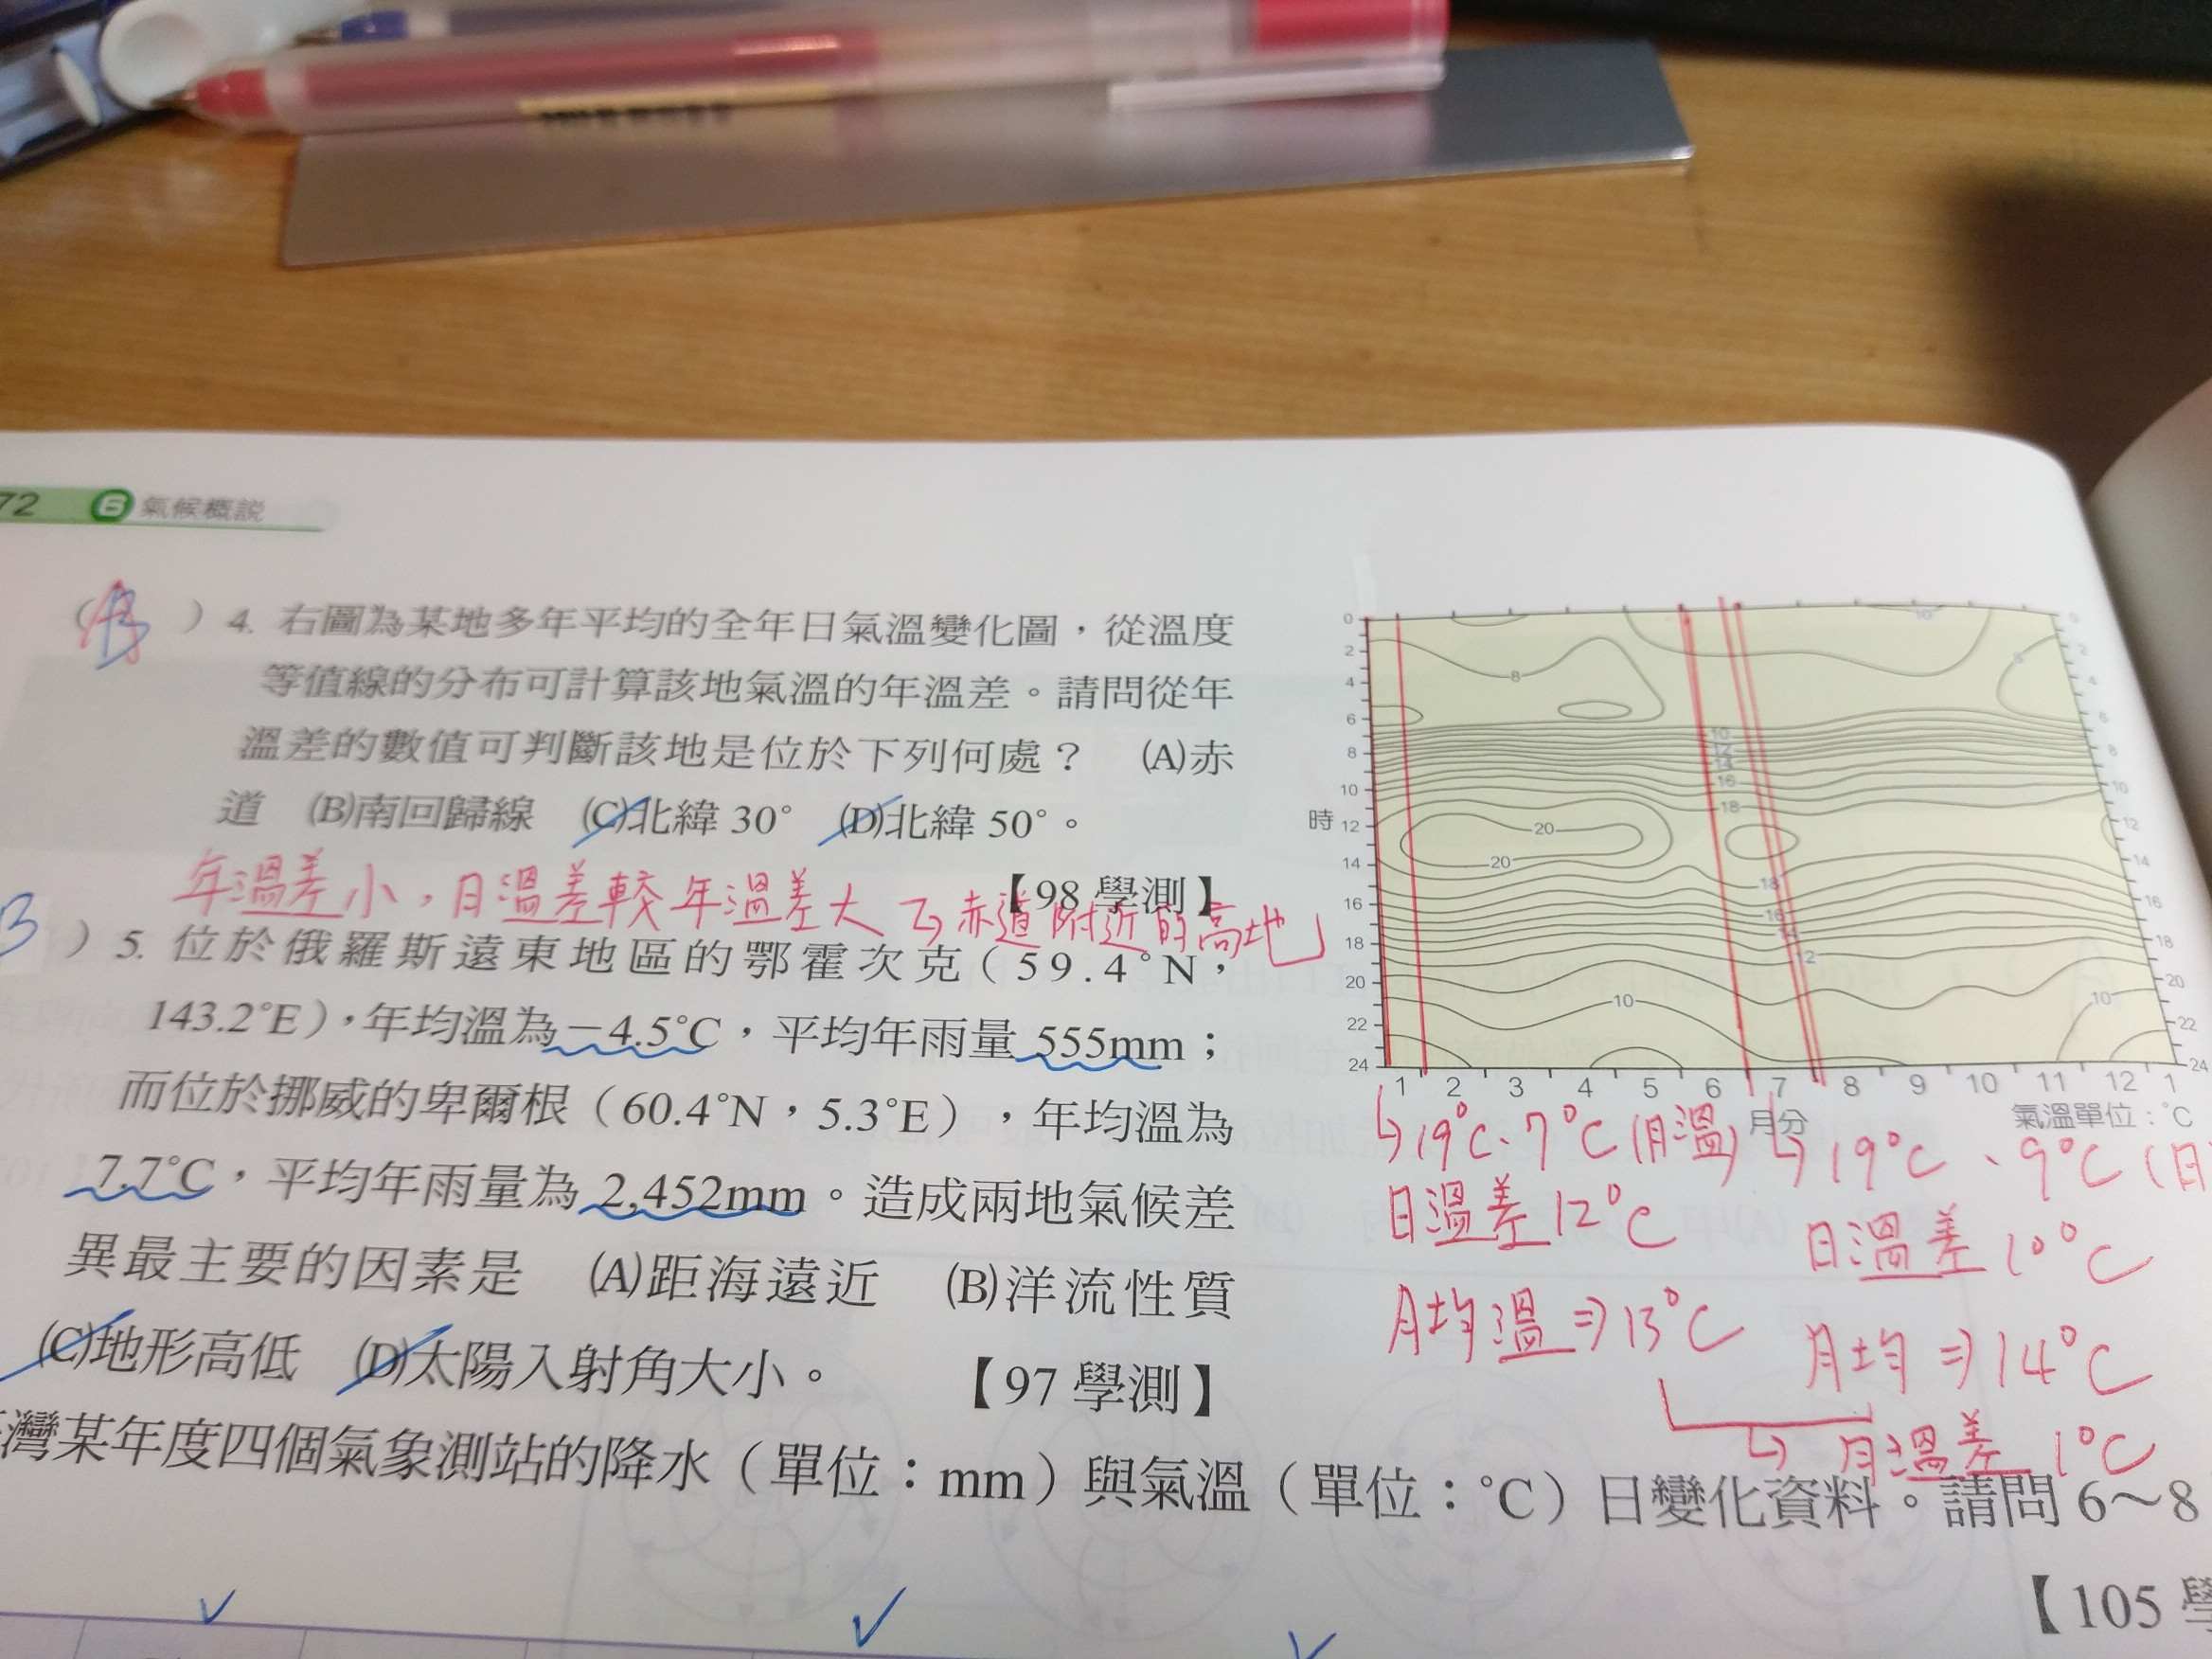 72 6 氣候概說
( B ) 4. 右圖為某地多年平均的全年日氣溫變化圖，從溫度
等值線的分布可計算該地氣溫的年溫差。請問從年
溫差的數值可判斷該地是位於下列何處？ (A)赤
道 (B)南回歸線 (C)北緯 30° (D)北緯 50°。
【98 學測】
年溫差小，日溫差較年溫差大 ↳ 赤道附近的高地
B ) 5. 位於俄羅斯遠東地區的鄂霍次克（59.4°N，
143.2°E），年均溫為－4.5°C，平均年雨量 555mm；
而位於挪威的卑爾根（60.4°N，5.3°E），年均溫為
7.7°C，平均年雨量為 2,452mm。造成兩地氣候差
異最主要的因素是 (A)距海遠近 (B)洋流性質
(C)地形高低 (D)太陽入射角大小。 【97 學測】
灣某年度四個氣象測站的降水（單位：mm）與氣溫（單位：°C）日變化資料。請問 6～8
【105 學
0 2 4 6 8 10 12 14 16 18 20 22 24
時
8 10 12 14 16 18 20 20 18 16 14 12 10 10 10
0 2 4 6 8 10 12 14 16 18 20 22 24
1 2 3 4 5 6 7 8 9 10 11 12 1
月分
氣溫單位：°C
↳ 19°C、7°C (月溫)
日溫差 12°C
月均溫 ⇒ 13°C
↳ 19°C、9°C (日
日溫差 10°C
月均 ⇒ 14°C
↳ 月溫差 1°C